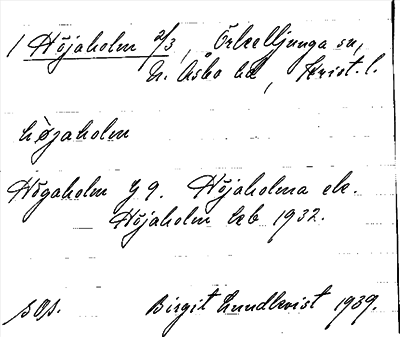 1 Höjaholm 2/3, Örkelljunga sn,
N. Åsbo hd, Krist. l.
höjaholm
Högaholm G 9. Höjaholma ek.
Höjaholm kb 1932.
sOs. Birgit Lundkvist 1939.